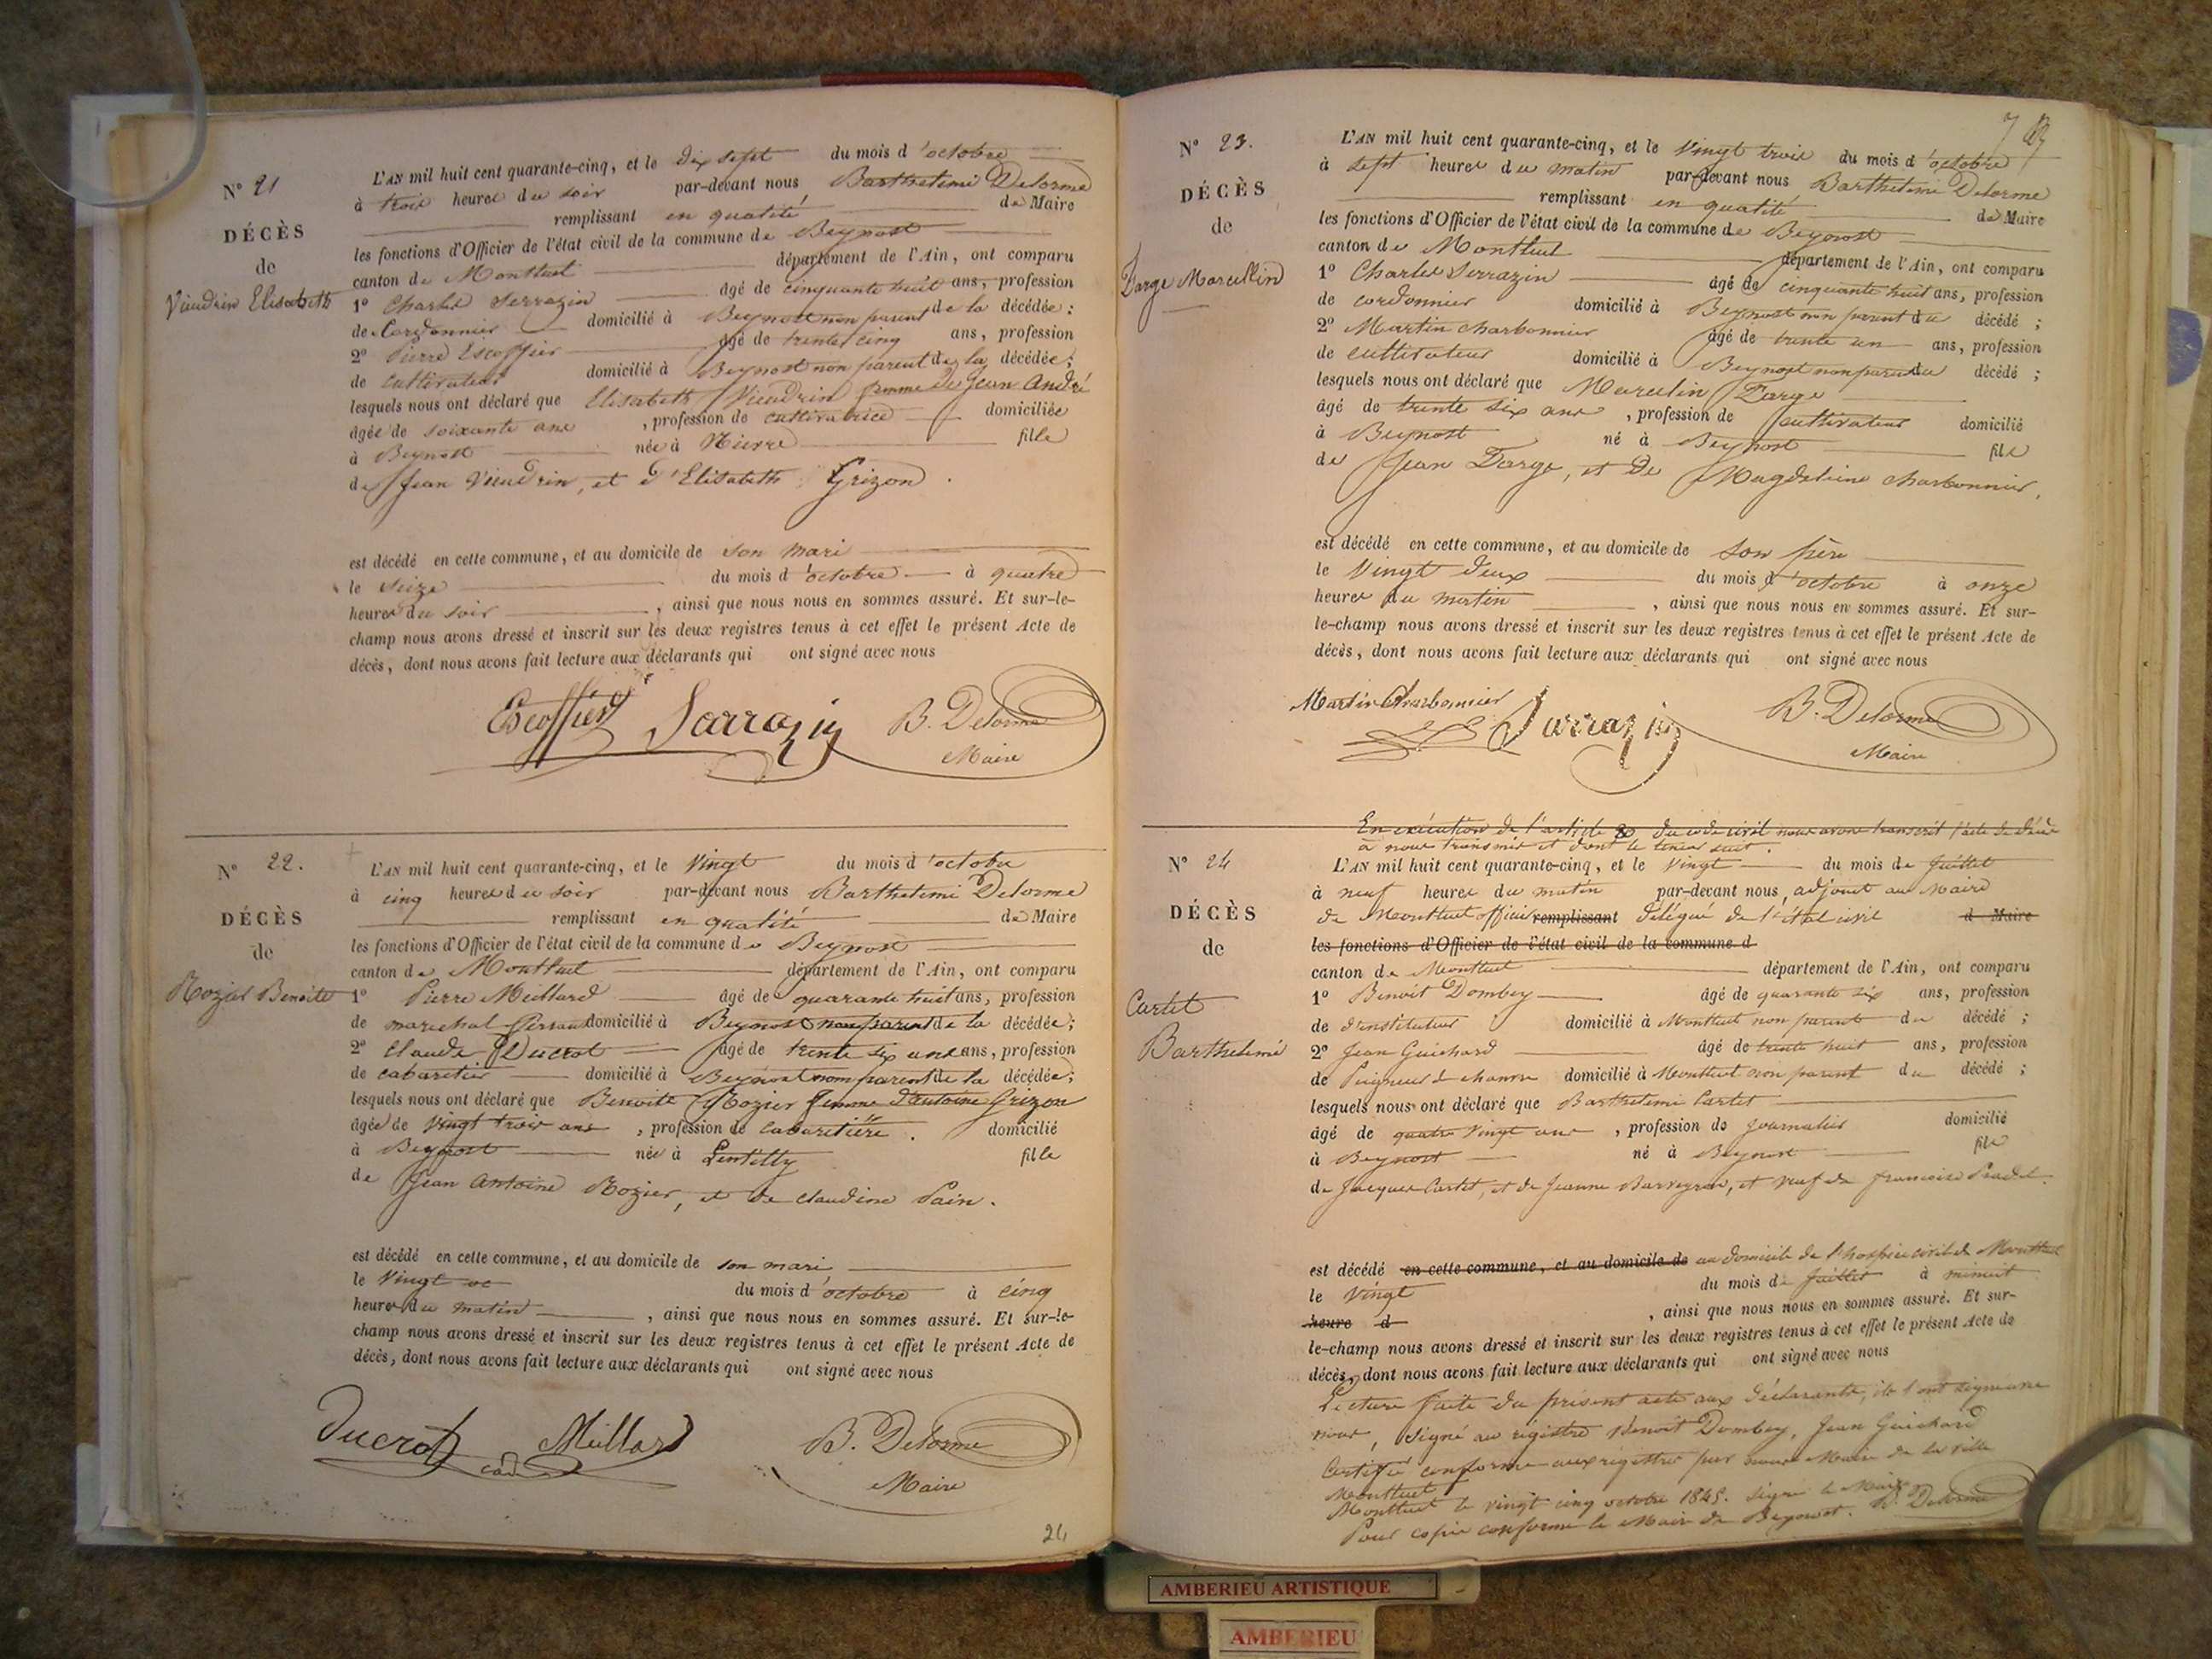 N° 21
DÉCÈS
de
Vieudrin Elisabeth
L'AN mil huit cent quarante-cinq, et le dix sept du mois d'octobre
à trois heures du soir par-devant nous Barthelemi Delorme
remplissant en qualité de Maire
les fonctions d'Officier de l'état civil de la commune de Beynost
canton de Montluel département de l'Ain, ont comparu
1° Charles Serrazin âgé de cinquante huit ans, profession
de Cordonnier domicilié à Beynost non parent de la décédée ;
2° Pierre Escoffier âgé de trente cinq ans, profession
de cultivateur domicilié à Beynost non parent de la décédée ;
lesquels nous ont déclaré que Elisabeth Vieudrin femme de Jean André
âgée de soixante ans , profession de cultivatrice domiciliée
à Beynost née à Mierre fille
de Jean Vieudrin, et d'Elisabeth Grizon .
est décédé en cette commune, et au domicile de son mari
le seize du mois d'octobre à quatre
heures du soir , ainsi que nous nous en sommes assuré. Et sur-le-
champ nous avons dressé et inscrit sur les deux registres tenus à cet effet le présent Acte de
décès, dont nous avons fait lecture aux déclarants qui ont signé avec nous
Escoffier Sarrazin B. Delorme
Maire
N° 22.
DÉCÈS
de
Rozier Benoite
L'AN mil huit cent quarante-cinq, et le Vingt du mois d'octobre
à cinq heures du soir par-devant nous Barthelemi Delorme
remplissant en qualité de Maire
les fonctions d'Officier de l'état civil de la commune de Beynost
canton de Montluel département de l'Ain, ont comparu
1° Pierre Meillard âgé de quarante huit ans, profession
de marechal ferrant domicilié à Beynost non parent de la décédée ;
2° Claude Ducrot âgé de trente six ans ans, profession
de cabaretier domicilié à Beynost non parent de la décédée ;
lesquels nous ont déclaré que Benoite Rozier femme d'antoine Grizon
âgée de vingt trois ans , profession de cabaretière . domicilié
à Beynost née à Lentilly fille
de Jean Antoine Rozier, et de Claudine Pain .
est décédé en cette commune, et au domicile de son mari
le Vingt du mois d'octobre à cinq
heures du matin , ainsi que nous nous en sommes assuré. Et sur-le-
champ nous avons dressé et inscrit sur les deux registres tenus à cet effet le présent Acte de
décès, dont nous avons fait lecture aux déclarants qui ont signé avec nous
Ducrot Meillard B. Delorme
cad
Maire
24
N° 23.
DÉCÈS
de
Farge Marcellin
L'AN mil huit cent quarante-cinq, et le Vingt trois du mois d'octobre
à sept heures du matin par-devant nous Barthelemi Delorme
remplissant en qualité de Maire
les fonctions d'Officier de l'état civil de la commune de Beynost
canton de Montluel département de l'Ain, ont comparu
1° Charles Serrazin âgé de cinquante huit ans, profession
de cordonnier domicilié à Beynost non parent du décédé ;
2° Martin Charbonnier âgé de trente un ans, profession
de cultivateur domicilié à Beynost non parent du décédé ;
lesquels nous ont déclaré que Marcelin Farge
âgé de trente six ans , profession de cultivateur domicilié
à Beynost né à Beynost fils
de Jean Farge, et de Magdeleine Charbonnier,
est décédé en cette commune, et au domicile de son père
le Vingt deux du mois d'octobre à onze
heures du matin , ainsi que nous nous en sommes assuré. Et sur-
le-champ nous avons dressé et inscrit sur les deux registres tenus à cet effet le présent Acte de
décès, dont nous avons fait lecture aux déclarants qui ont signé avec nous
Martin Charbonnier Sarrazin B. Delorme
Maire
En exécution de l'article 80 du code civil nous avons transcrit l'acte de décès
à nous transmis et dont la teneur suit .
N° 24
DÉCÈS
de
Cartet
Barthelemi
L'AN mil huit cent quarante-cinq, et le Vingt du mois de Juillet
à neuf heures du matin par-devant nous, adjoint au Maire
de Montluel officier remplissant délégué de l'état civil d Maire
les fonctions d'Officier de l'état civil de la commune d
canton de Montluel département de l'Ain, ont comparu
1° Benoit Dombey âgé de quarante six ans, profession
de d'instituteur domicilié à Montluel non parent du décédé ;
2° Jean Guichard âgé de trente huit ans, profession
de Peigneur de chanvre domicilié à Montluel non parent du décédé ;
lesquels nous ont déclaré que Barthelemi Cartet
âgé de quatre Vingt ans , profession de Journalier domicilié
à Beynost né à Beynost fils
de Jacques Cartet, et de Jeanne Barreyron, et Veuf de francoise Pradel.
est décédé en cette commune, et au domicile de au domicile de l'hospice civil de Montluel
le Vingt du mois de Juillet à minuit
heure d , ainsi que nous nous en sommes assuré. Et sur-
le-champ nous avons dressé et inscrit sur les deux registres tenus à cet effet le présent Acte de
décès, dont nous avons fait lecture aux déclarants qui ont signé avec nous
Lecture faite du présent acte aux déclarants, ils l'ont signé avec
nous, signé au régistre Benoit Dombey, Jean Guichard
Certifié conforme aux régistres par nous Maire de la ville
Montluel
Montluel le vingt cinq octobre 1845. signé le Maire
Pour copie conforme le Maire de Beynost. B. Delorme
AMBERIEU ARTISTIQUE
AMBERIEU